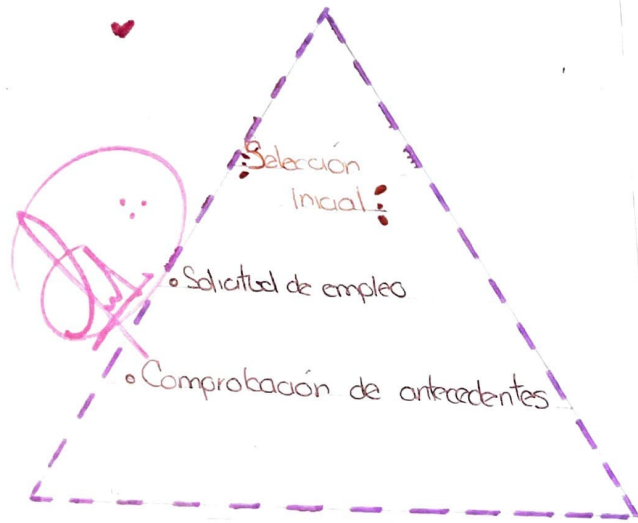 Selección
Inicial:
• Solicitud de empleo
• Comprobación de antecedentes